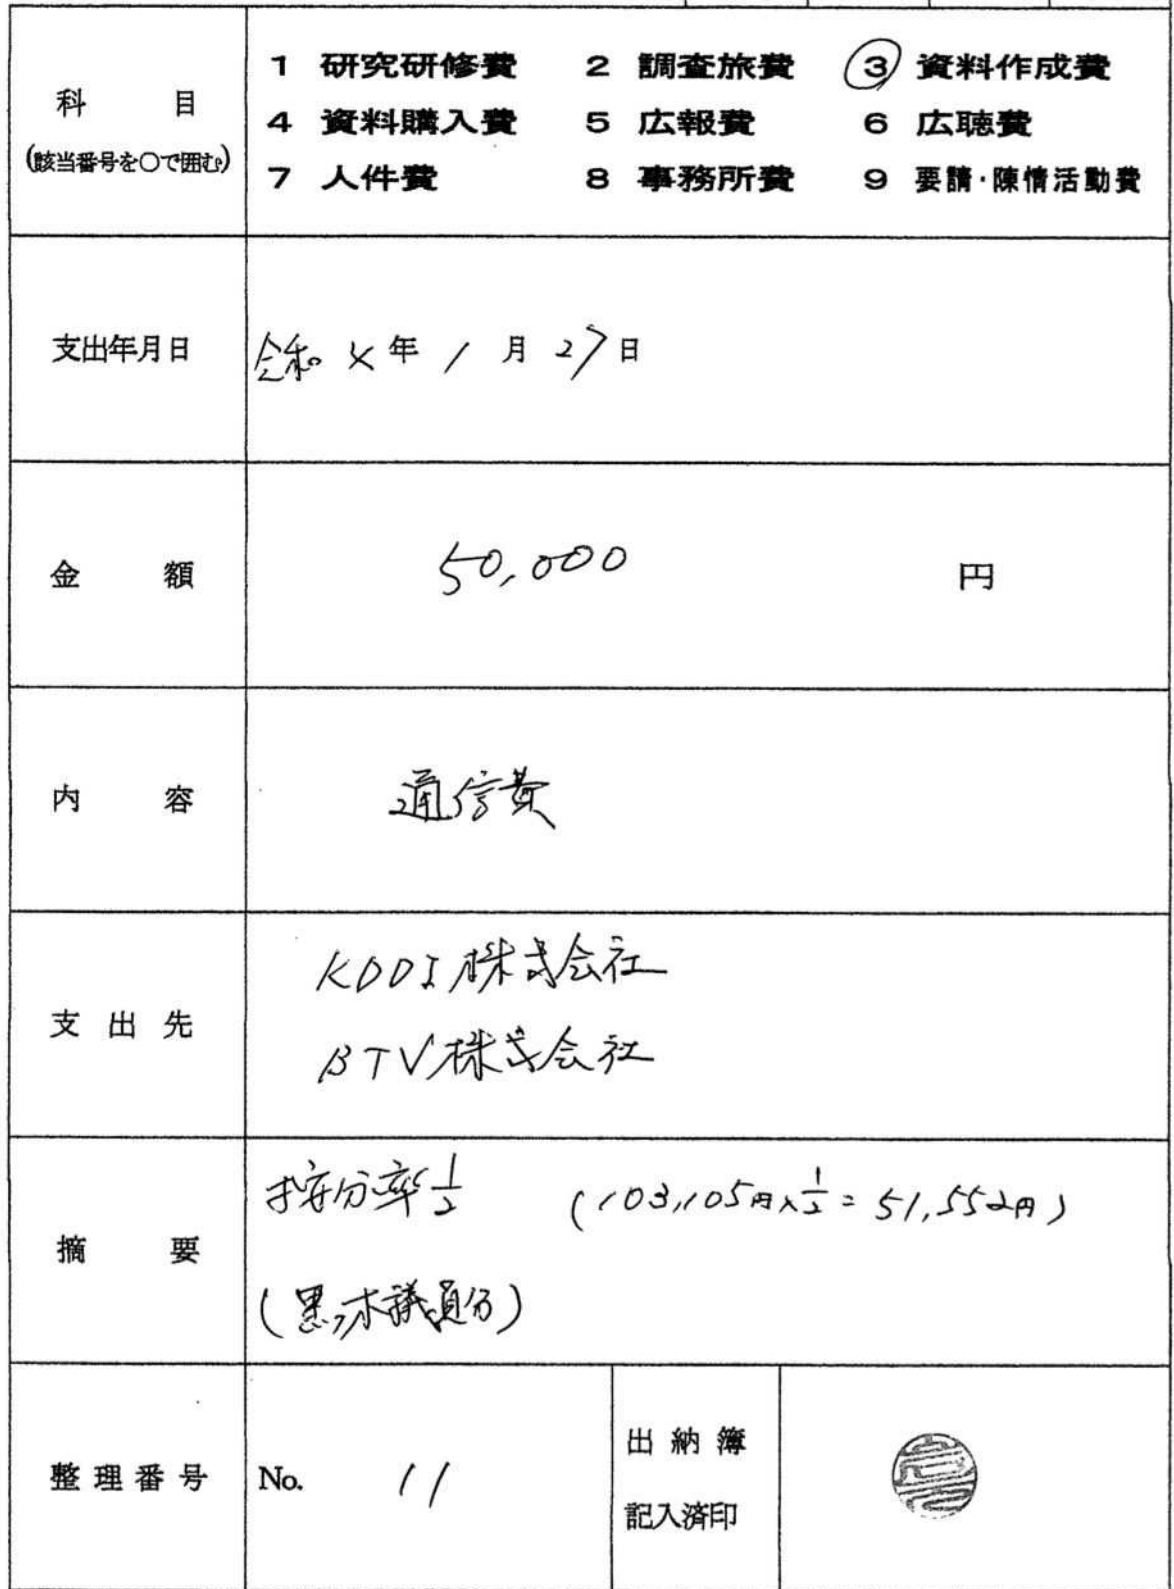 科 目
(該当番号を〇で囲む)
1 研究研修費 2 調査旅費 3 資料作成費
4 資料購入費 5 広報費 6 広聴費
7 人件費 8 事務所費 9 要請・陳情活動費
支出年月日 令和 4年 1月 27日
金 額 50,000 円
内 容 通信費
支出先 KDDI株式会社
BTV株式会社
摘 要 按分率1/2 (103,105円×1/2=51,552円)
(黒木議員分)
整理番号 No. 11
出納簿
記入済印